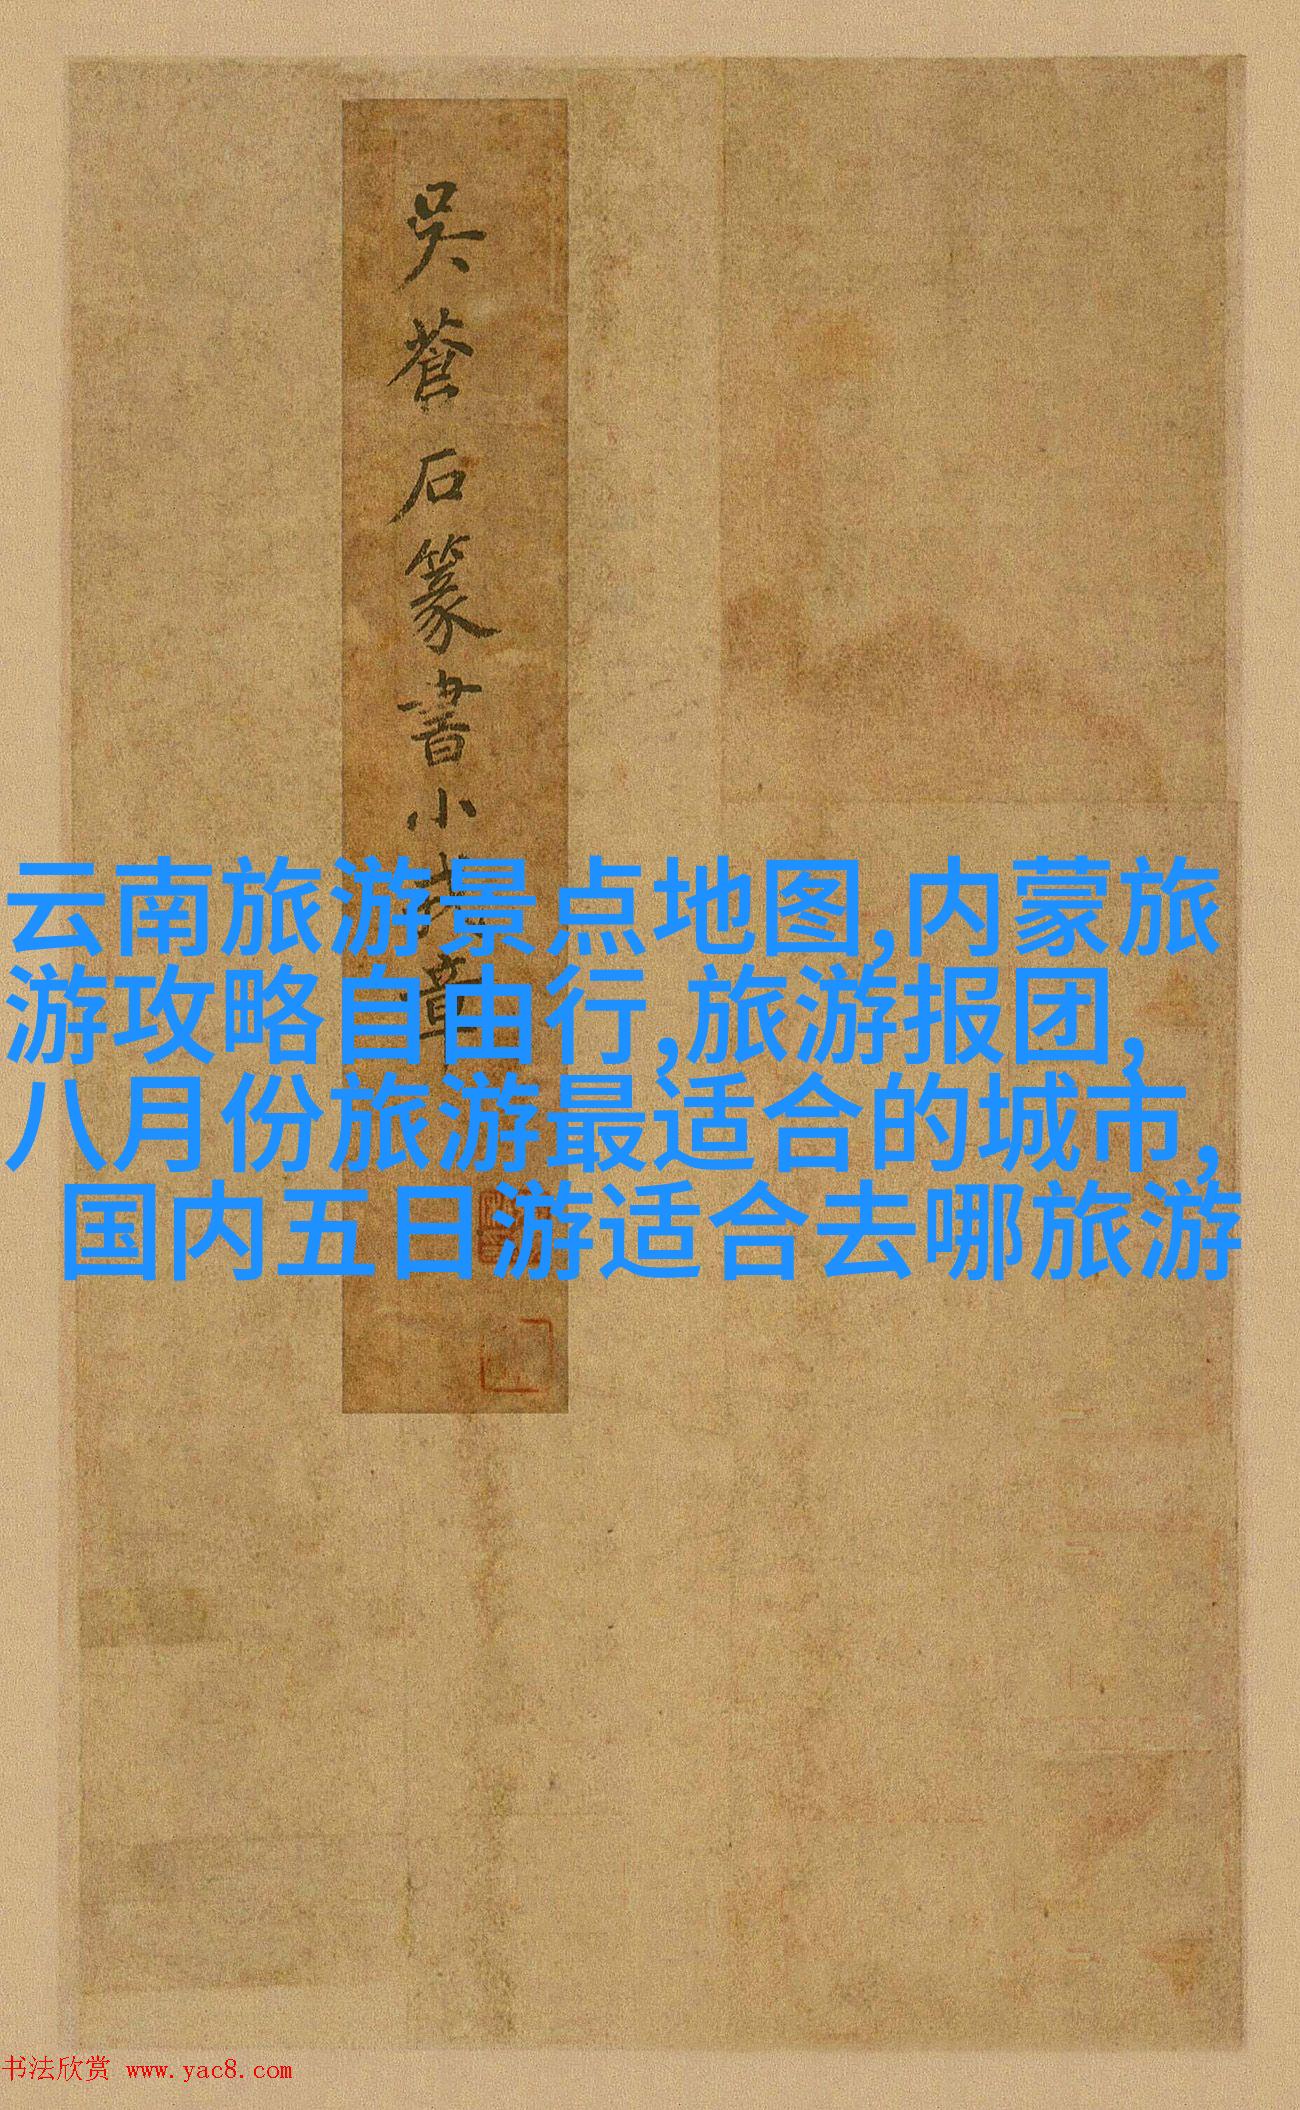 吳蒼石篆書小
章
云南旅游景点地图,内蒙旅
游攻略自由行,旅游报团,
八月份旅游最适合的城市,
国内五日游适合去哪旅游
书法欣赏 www.yac8.com